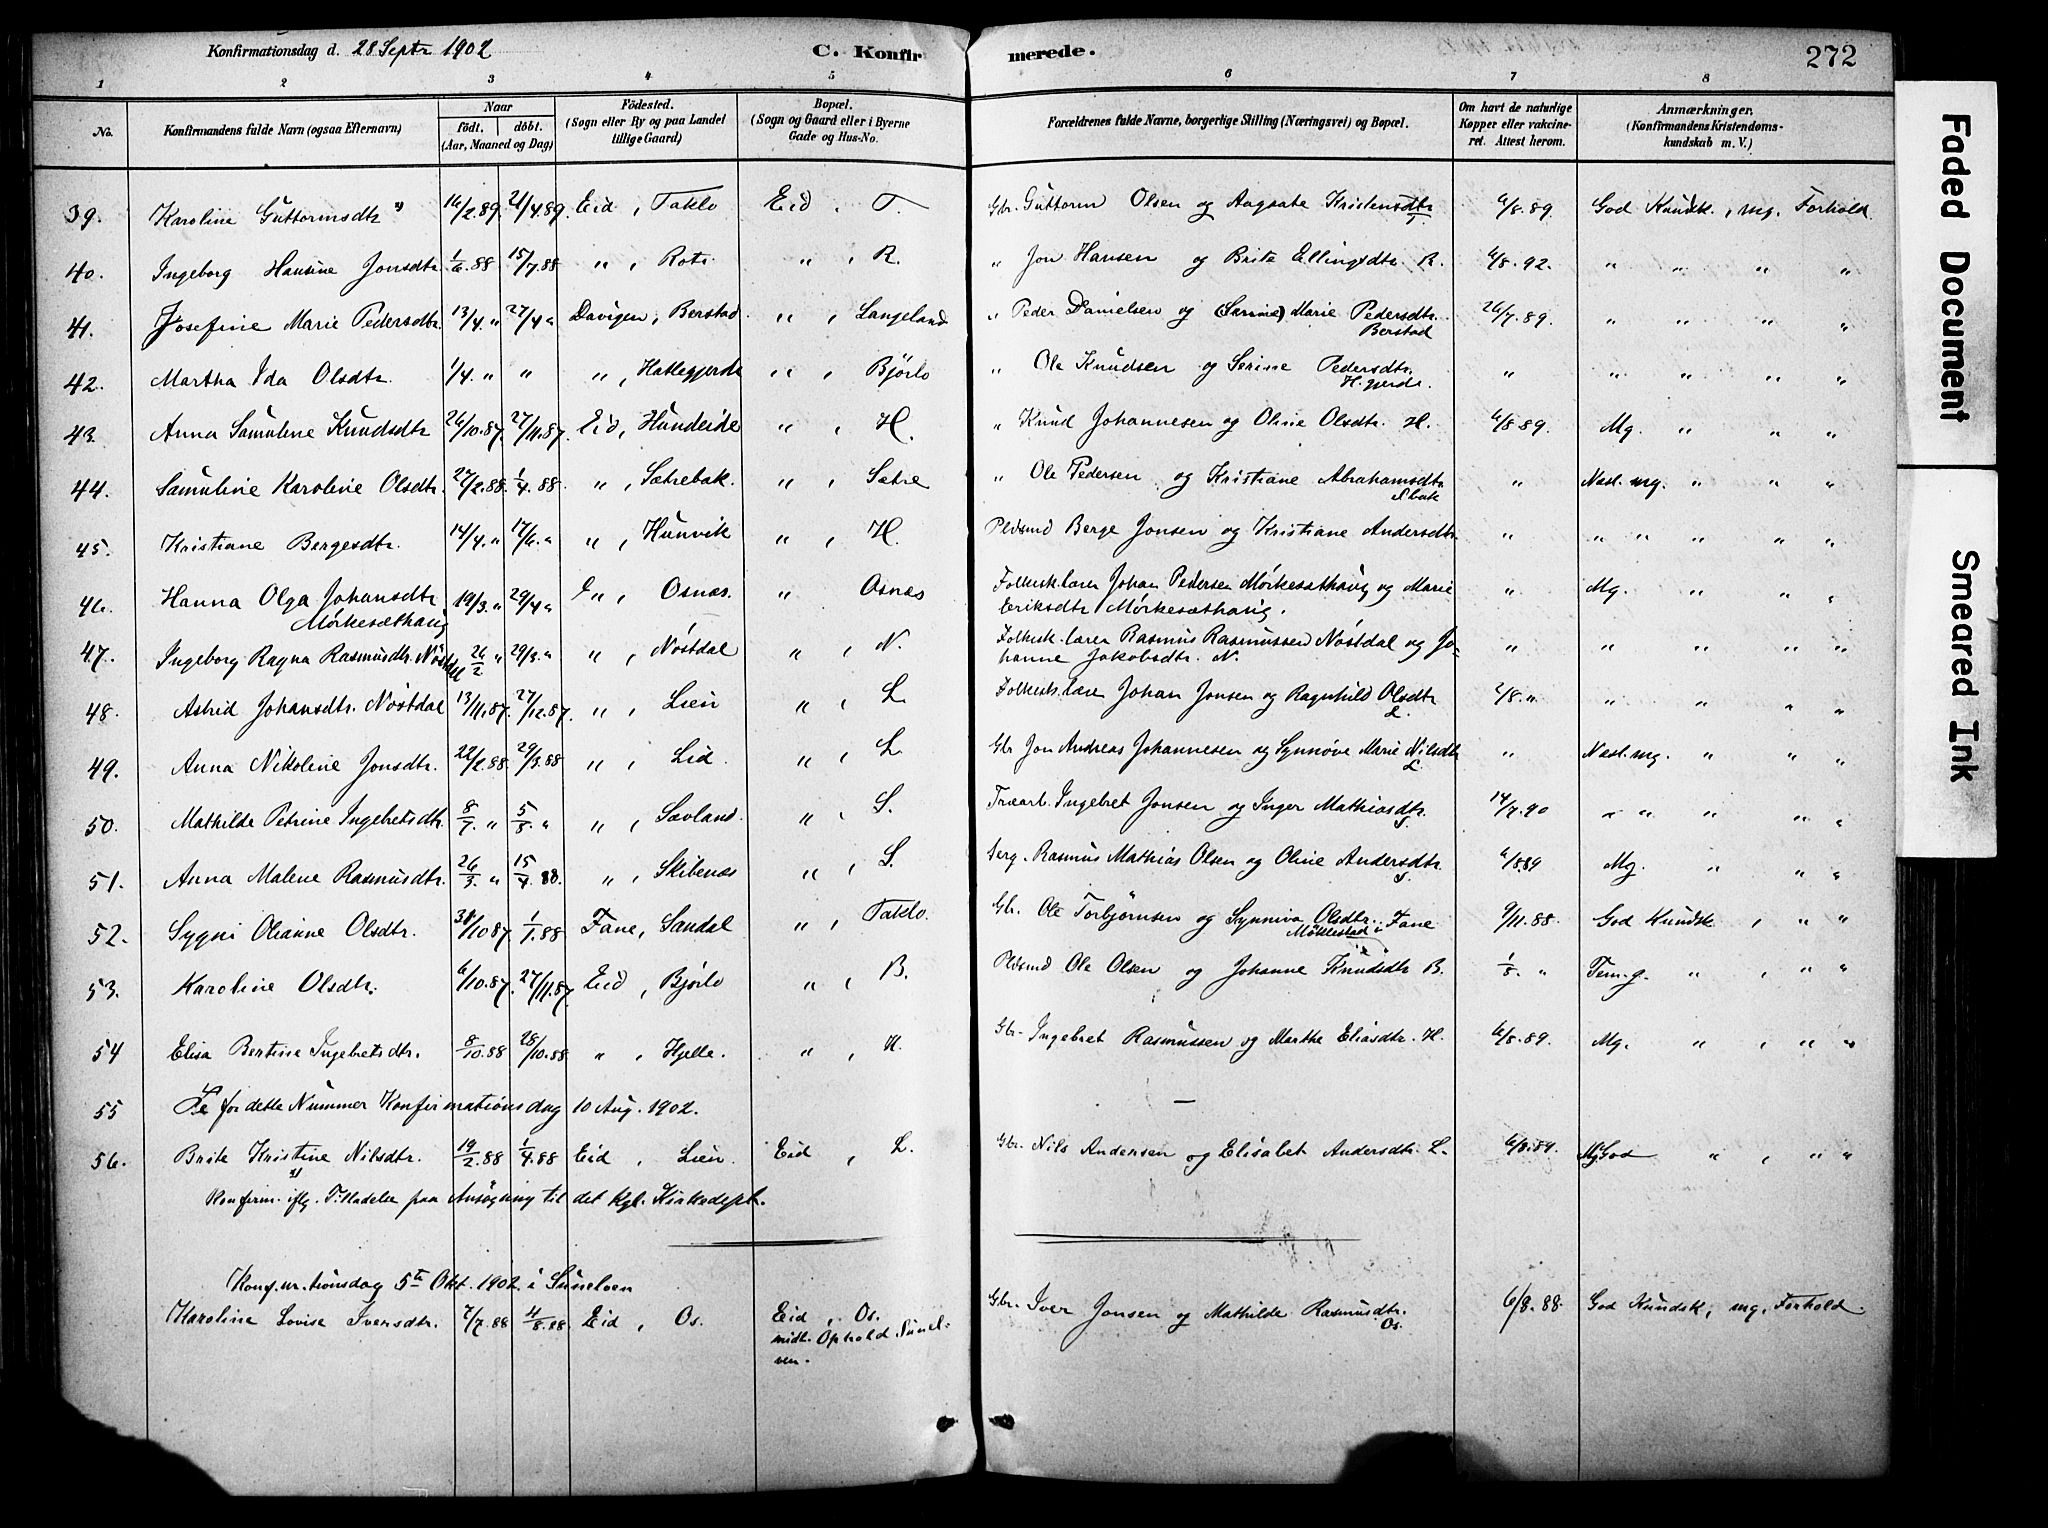 Konfirmationsdag d. 28 Septr 1902 C. Konfirmerede. 272
1 2 3 4 5 6 7 8
No. Konfirmandens fulde Navn (ogsaa Efternavn) Naar født. døbt. (Aar, Maaned og Dag) Födested. (Sogn eller By og paa Landet tillige Gaard) Bopæl. (Sogn og Gaard eller i Byerne Gade og Hus-No. Forældrenes fulde Navne, borgerlige Stilling (Næringsvei) og Bopæl. Om havt de naturlige Kopper eller vakcineret. Attest herom. Anmærkninger. (Konfirmandens Kristendomskundskab m. V.)
39. Karoline Guttormsdtr 16/2.89 21/4.89. Eid, Taklo Eid, T. Gbr. Guttorm Olsen og Aagaate Kristensdtr T 6/8.89. God Kundsk., mg. Forhold.
40. Ingeborg Hansine Jonsdtr 1/6.88 15/7.88 " , Rots. " , R. " Jon Hansen og Brite Ellingsdtr. R. 6/8.92. " " " "
41. Josefine Marie Pedersdtr. 13/4. " 27/4 " Davigen, Berstad " , Langeland " Peder Danielsen og (Sarine) Marie Pedersdtr. Berstad 26/7.89. " " " "
42. Martha Ida Olsdtr. 1/4. " " " , Hatlegjerde " , Bjørlo " Ole Knudsen og Serine Pedersdtr. H.gjerde. " " " " "
43. Anna Samuline Knudsdtr 26/10.87. 27/11.87. Eid, Hundeide " , H. " Knud Johannesen og Oline Olsdtr. H. 6/8 89. Mg. " " "
44. Samuline Karoline Olsdtr. 27/2.88. 1/4.88 " , Sætrebak. " , Sætre " Ole Pedersen og Kristiane Abrahamsdtr S.bak " Næsl. mg. " " "
45. Kristiane Bergesdtr. 14/4. " 17/6. " " , Hunvik " , H. Pldsmd Berge Jonsen og Kristiane Andersdtr. " " " " " "
46. Hanna Olga Johansdtr Mørkesæthaug 19/3. " 29/4 " " , Osnæs. " Osnæs Folkesk.lærer Johan Pedersen Mørkesæthaug og Marie Eriksdtr Mørkesæthaug. " Mg. " " "
47. Ingeborg Ragna Rasmusdtr. Nøstdal 26/2 " 29/3. " " , Nøstdal " , N. Folkesk.lærer Rasmus Rasmussen Nøstdal og Johanne Jakobsdtr. N. " " " " "
48. Astrid Johansdtr. Nøstdal 13/11.87. 27/12.87. " , Lien " , L Folkesk.lærer Johan Jonsen og Ragnhild Olsdtr L. 6/8. " " " " "
49. Anna Nikoline Jonsdtr. 22/2.88 29/3.88 " , Lid. " , L Gbr Jon Andreas Johannesen og Synnøve Marie Nilsdtr L " Næsl. mg. " " "
50. Mathilde Petrine Ingebretsdtr. 8/7. " 5/8. " " , Sævland. " , S. Træarb. Ingebret Jonsen og Inger Mathiasdtr. S. 14/7.90 " " " " "
51. Anna Malene Rasmusdtr. 26/3. " 15/4.88. " , Skibenæs " , S. Serg. Rasmus Mathias Olsen og Oline Andersdtr S 6/8.89 Mg. " " "
52. Sygni Olianne Olsdtr. 31/10 87. 1/1.88 Fane, Sandal " , Taklo. Gbr. Ole Torbjørnsen og Synniva Olsdtr. Møklestad i Fane 9/11.88. God Kundsk , " "
53. Karoline Olsdtr. 6/10.87. 27/11.87. Eid, Bjørlo " , B. Pldsmd Ole Olsen og Johanne Knudsdtr B. 1/8. " Tem.g. " , " "
54 Elisa Bertine Ingebretsdtr. 8/10.88 28/10.88 " , Hjelle. " , H. Gbr. Ingebret Rasmussen og Marthe Eliasdtr. H. 6/8.89. Mg. " , " "
55 Se for dette Nummer Konfirmationsdag 10 Aug. 1902. —
56. Brite Kristine Nilsdtr. 19/2.88 1/4.88 Eid, Lien. Eid, L. Gbr. Nils Andersen og Elisabet Andersdtr. L. 6/8.89. Mg God " , " "
Konfirm. iflg. Tilladelse paa Ansøgning til det kgl. Kirkedept.
Konf.m.tionsdag 5te Okt. 1902 i Sunelven
Karoline Lovise Iversdtr. 7/7.88 4/8.88. Eid, Os. Eid, Os. Gbr. Iver Jonsen og Mathilde Rasmusdtr. Os. 6/8.88. God Kundsk, mg. Forhold.
midl. Ophold Sunelven.
Faded Document
Smeared Ink